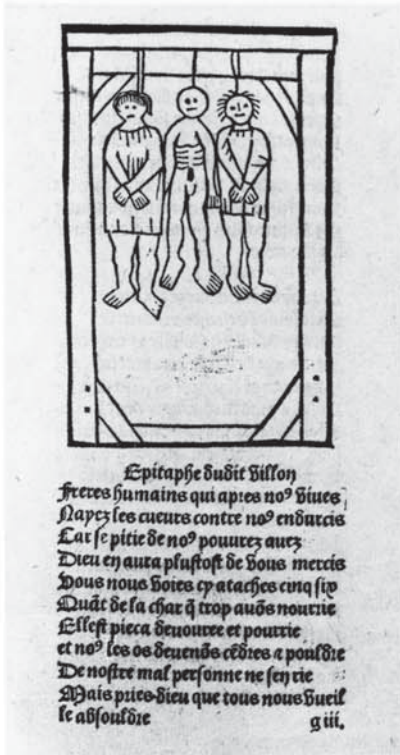 Epitaphe dudit Villon
Freres humains qui apres noꝰ viues
Nayez les cueurs contre noꝰ endurcis
Car se pitie de noꝰ pouurez auez
Dieu en aura plustost de vous mercis
Vous nous voies cy ataches cinq six
Quāt de la char q̄ trop auōs nourrie
Ellest pieca deuouree et pourrie
et noꝰ les os deuenōs cēdres a pouldre
De nostre mal personne ne sen rie
Mais pries dieu que tous nous vueil
le absouldre
g iii.